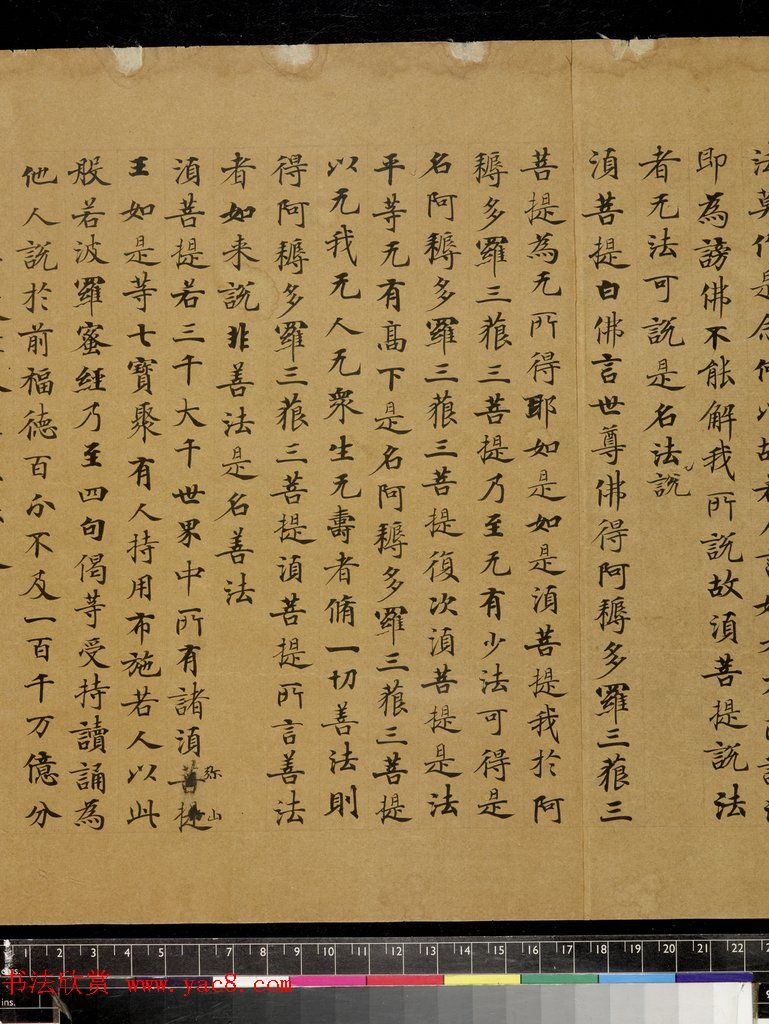 法莫作是念何以故若人言如来
即為謗佛不能解我所說故湏菩提說法
者无法可說是名法說
湏菩提白佛言世尊佛得阿耨多羅三藐三
菩提為无所得耶如是如是湏菩提我於阿
耨多羅三藐三菩提乃至无有少法可得是
名阿耨多羅三藐三菩提復次湏菩提是法
平等无有髙下是名阿耨多羅三藐三菩提
以无我无人无衆生无壽者脩一切善法則
得阿耨多羅三藐三菩提湏菩提所言善法
者如来說非善法是名善法
湏菩提若三千大千世界中所有諸湏菩提
弥山
王如是等七寶聚有人持用布施若人以此
般若波羅蜜経乃至四句偈等受持讀誦為
他人說於前福徳百分不及一百千万億分
1 2 3 4 5 6 7 8 9 10 11 12 13 14 15 16 17 18 19 20 21 22 23
cms.
书法欣赏 www.yac8.com
ins.